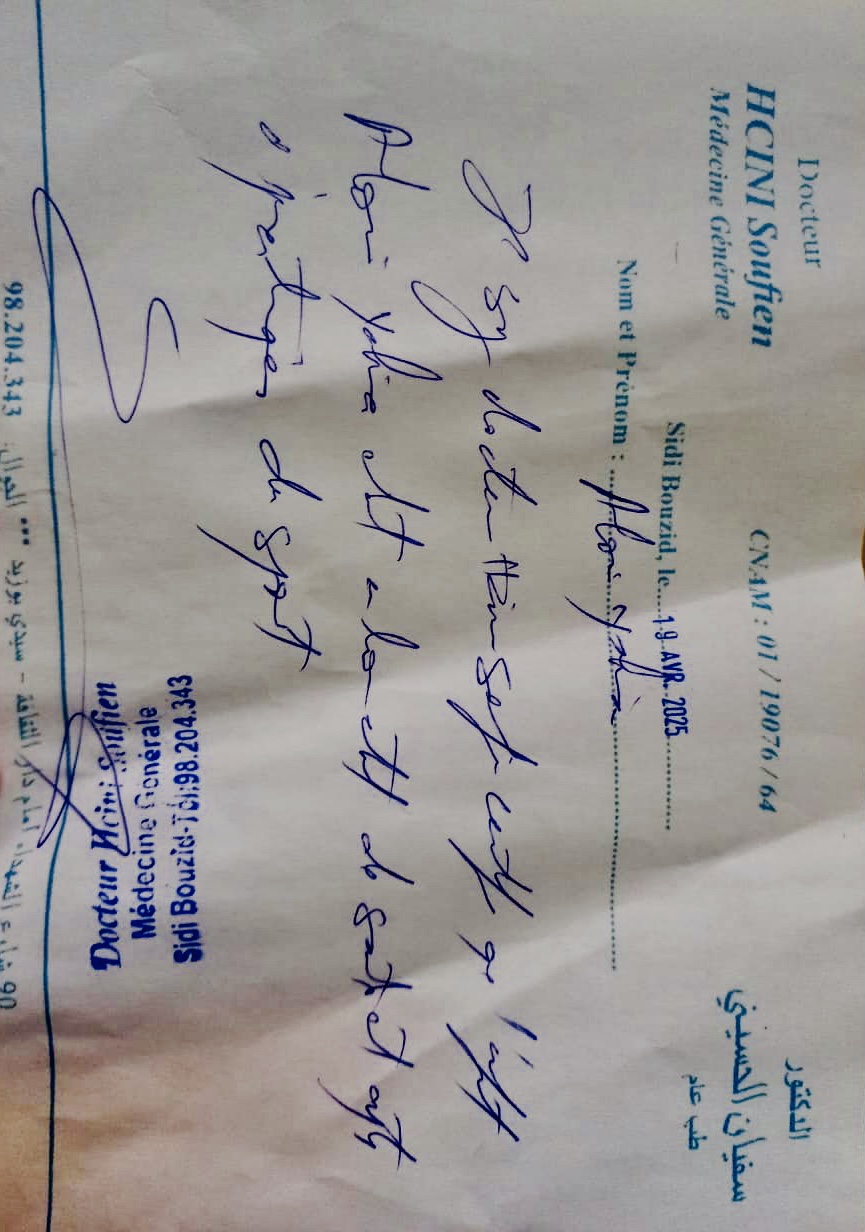 Docteur
HCINI Soufien
Médecine Générale
CNAM : 01 / 19076 / 64
الدكتور
سفيان الحسيني
طب عام
Sidi Bouzid, le....19 AVR. 2025..............
Nom et Prénom : ....Aloui Yahia..............................
docteur Hcini Sofien certifie que l'
Aloui Yahia est en bon état de santé et apte
a pratiquer du sport
Docteur Hcini Soufien
Médecine Génerale
Sidi Bouzid-Tél:98.204.343
90 شارع الشهداء أمام دار الثقافة - سيدي بوزيد *** الجوال: 98.204.343